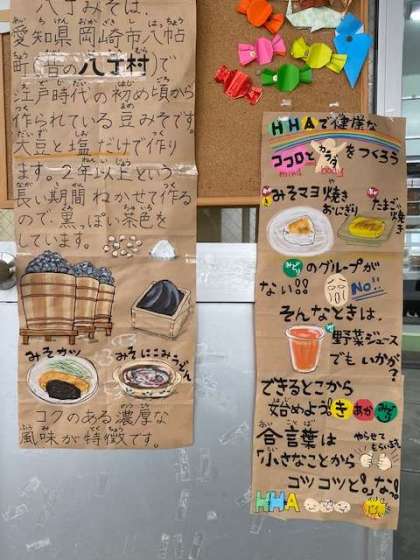 八丁みそは、
愛知県岡崎市八帖
町(昔の八丁村)で
江戸時代の初め頃から
作られている豆みそです。
大豆と塩だけで作り
ます。2年以上という
長い期間ねかせて作る
ので黒っぽい茶色を
しています。
みそカツ
みそにこみうどん
コクのある濃厚な
風味が特徴です。
HHAで健康な
ココロとカラダをつくろう
mind body
みそマヨ焼きおにぎり
たまご焼き
みどりのグループが
ない!! NO!!
そんなときは、
野菜ジュース
でもいかが?
できるとこから
始めよう!きあかみどり
合言葉は
やらせてもらいます
「小さなことから
コツコツと!」な♪
HHA